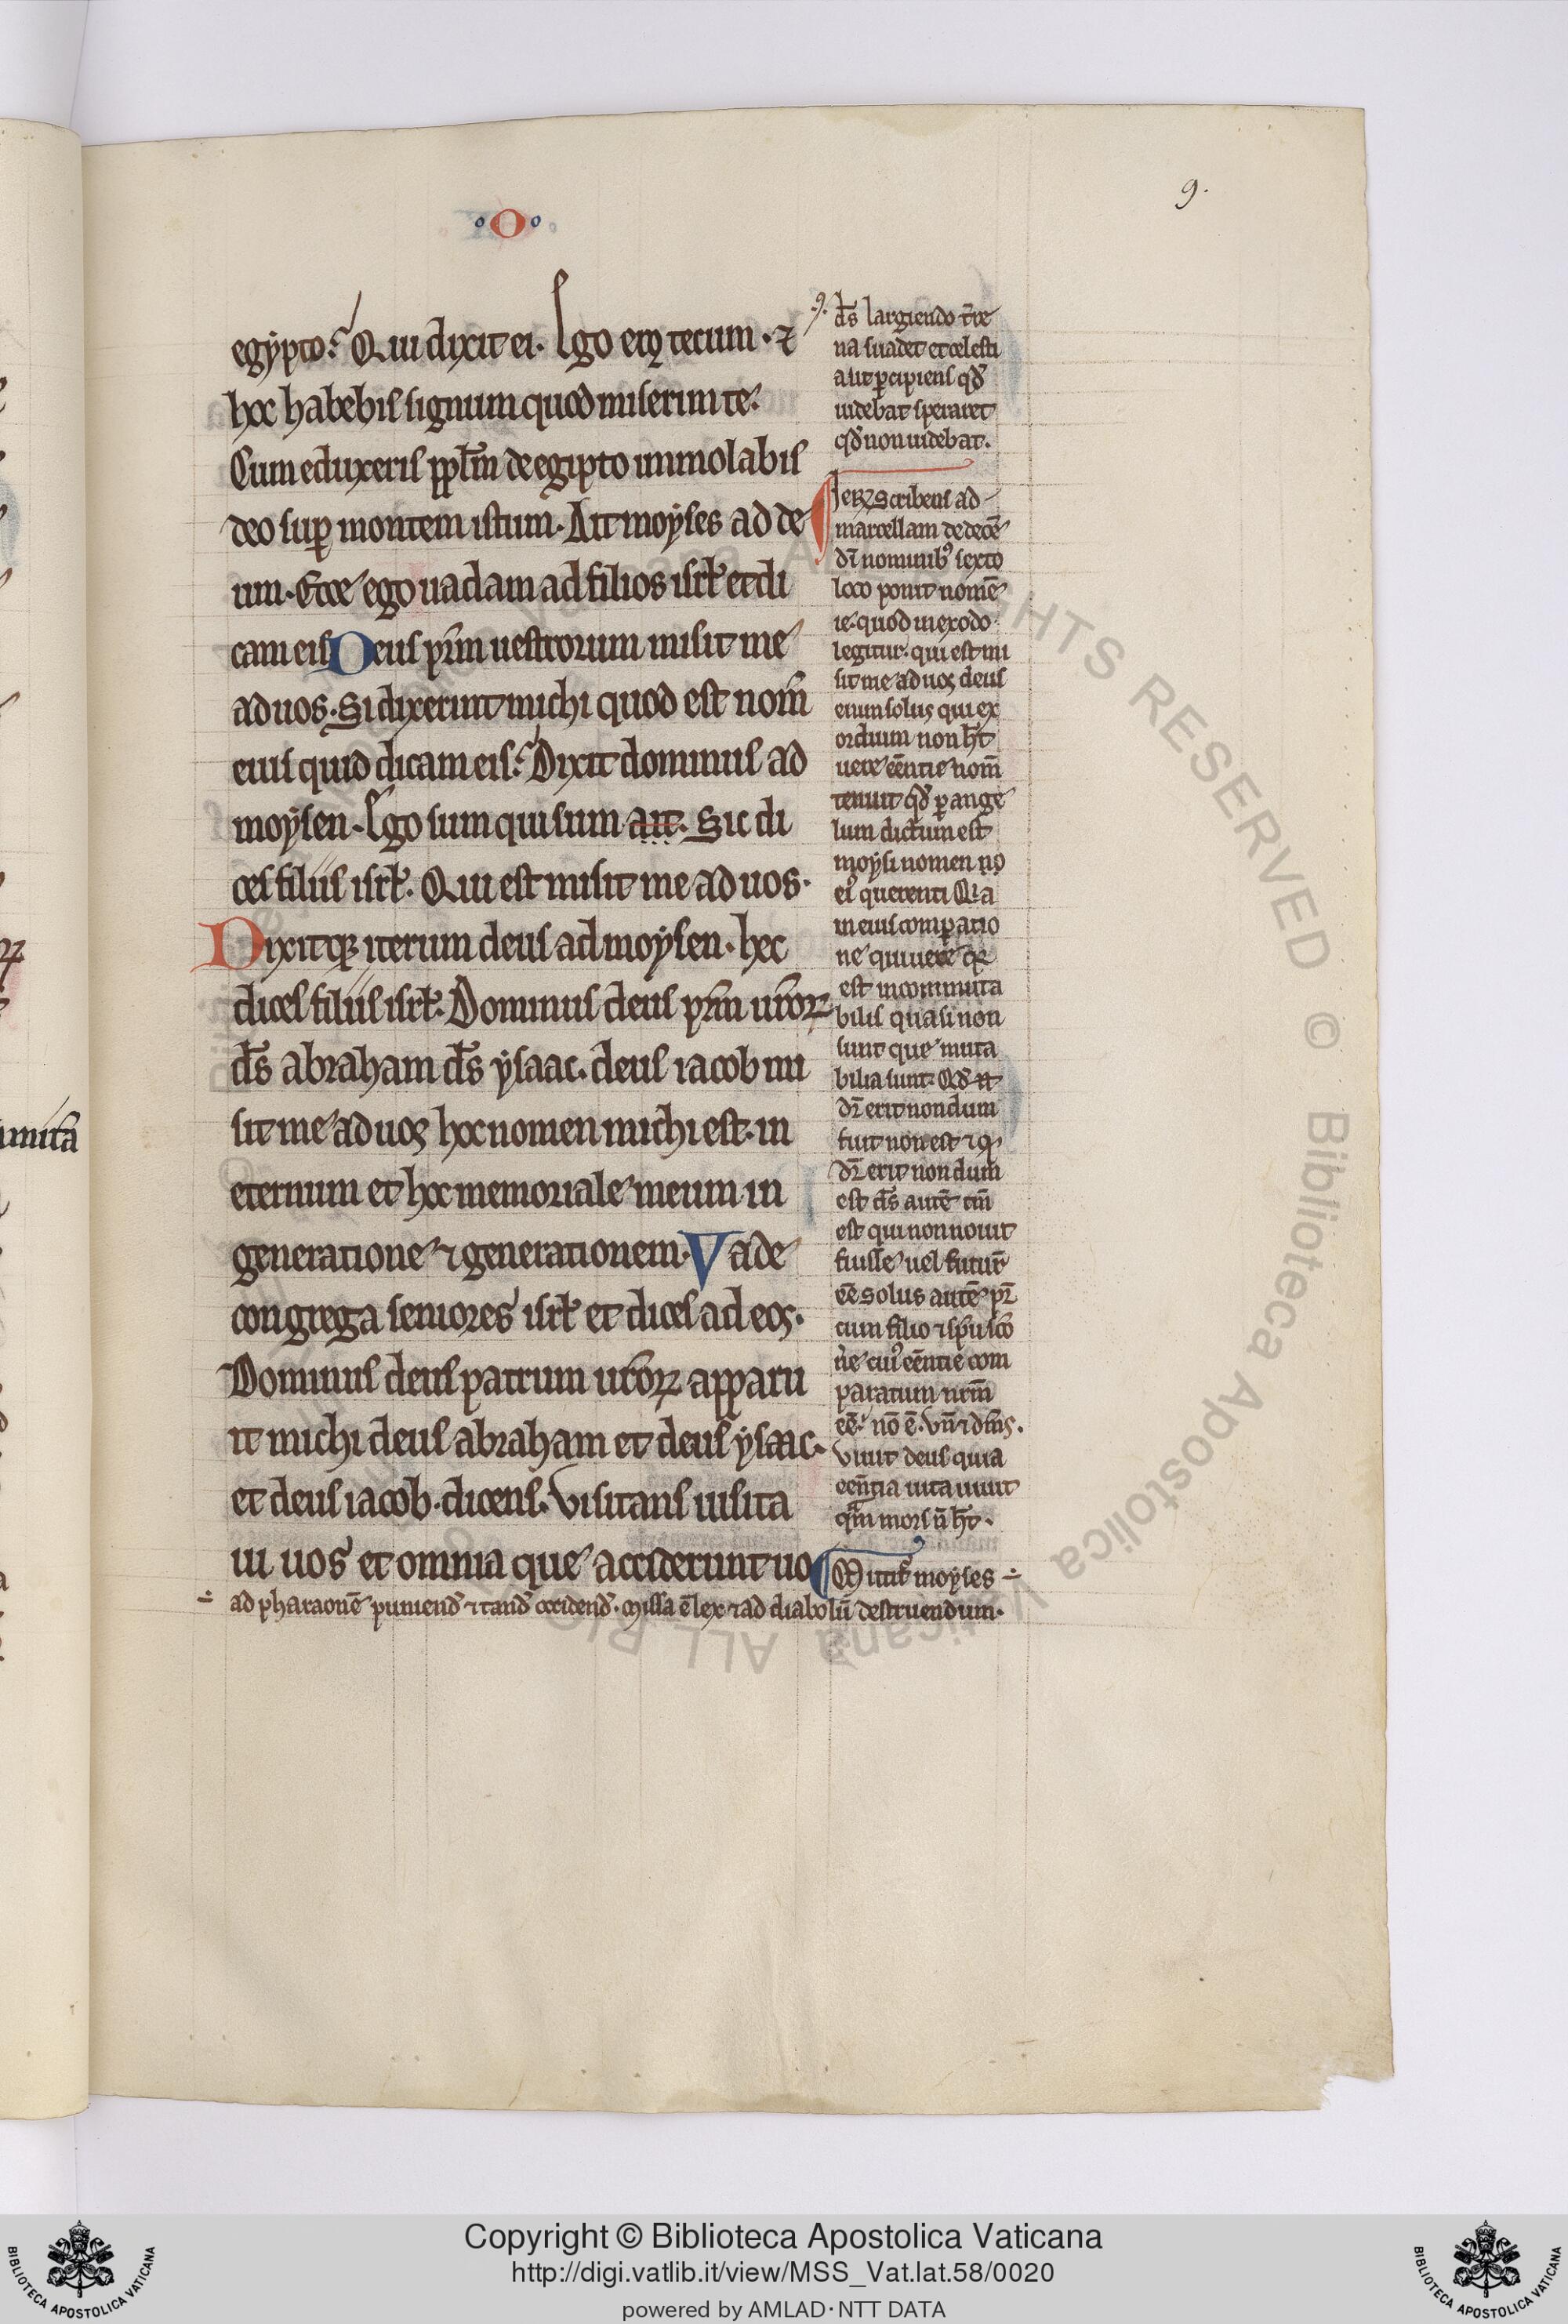 ·O·
9.
egypto? Qui dixit ei. Ego erọ tecum. ⁊
hoc habebis signum quod miserim te.
Cum eduxeris pp̄lm de egipto immolabis
deo suꝑ montem istum. Ait moyses ad de
um. Ecce ego uadam ad filios isrl̄ et di
cam eis Deus pr̄m uestrorum misit me
ad uos. Si dixerint michi quod est nom̄
eius quid dicam eis? Dixit dominus ad
moysen. Ego sum qui sum ait. Sic di
ces filiis isrl̄. Qui est misit me ad uos.
Dixitqꝫ iterum deus ad moysen. hec
dices filiis isrl̄. Dominus deus pr̄m ur̄oꝝ
ds̄ abraham ds̄ ysaac. deus iacob mi
sit me ad uos hoc nomen michi est. in
eternum et hoc memoriale meum in
generatione ⁊ generationem. Vade
congrega seniores isrl̄ et dices ad eos.
Dominus deus patrum ur̄oꝝ apparu
it michi deus abraham et deus ysaac.
et deus iacob. dicens. Visitans uisita
ui uos et omnia que acciderunt uo
ds̄ largiendo t̄re
na suadet et celesti
a ut ꝑcipiens qd̄
uidebat speraret
qd̄ non uidebat.
Ieꝝ scribens ad
marcellam de decē
dī nominibꝰ sexto
loco ponit nomē
ie. quod in exodo
legitur. qui est mi
sit me ad uos deus
enim solus qui ex
ordium non h̄t
uere eēntie nom̄
tenuit qd̄ ꝑ ange
lum dictum est
moysi nomen no
eiꝰ querenti Qia
in eius comꝑatio
ne qui uere
est incommuta
bilis quasi non
sunt que muta
bilia sunt.
dr̄ erit nondum
fuit non est ⁊ qd̄
dr̄ erit nondum
est ds̄ autē tm̄
est qui non nouit
fuisse uel futur̄
eē solus autē pr̄
cum filio ⁊ sp̄u sc̄o
ūe cuiꝰ eēntie com
paratum nr̄m
eē. nō ē. Vn̄
Viuit deus quia
eēntia uita uiuit
qm̄ mors n̄ h̄t.
Mittit̄ moyses ÷
÷ ad pharaonē puniend̄ ⁊ tand̄ occidend̄. Missa ē lex ⁊ ad diabolū destruendum.
Copyright © Biblioteca Apostolica Vaticana
http://digi.vatlib.it/view/MSS_Vat.lat.58/0020
powered by AMLAD·NTT DATA